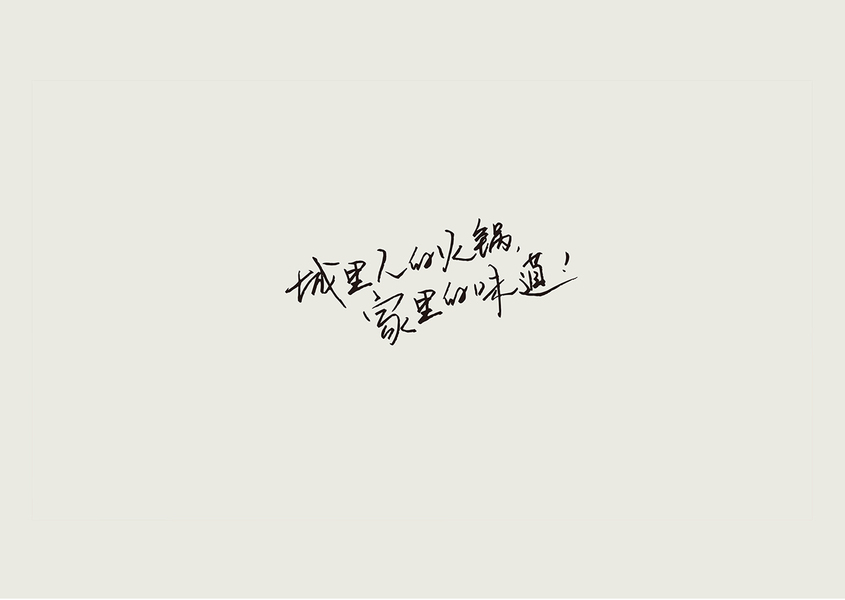 城里人的火锅，
家里的味道！